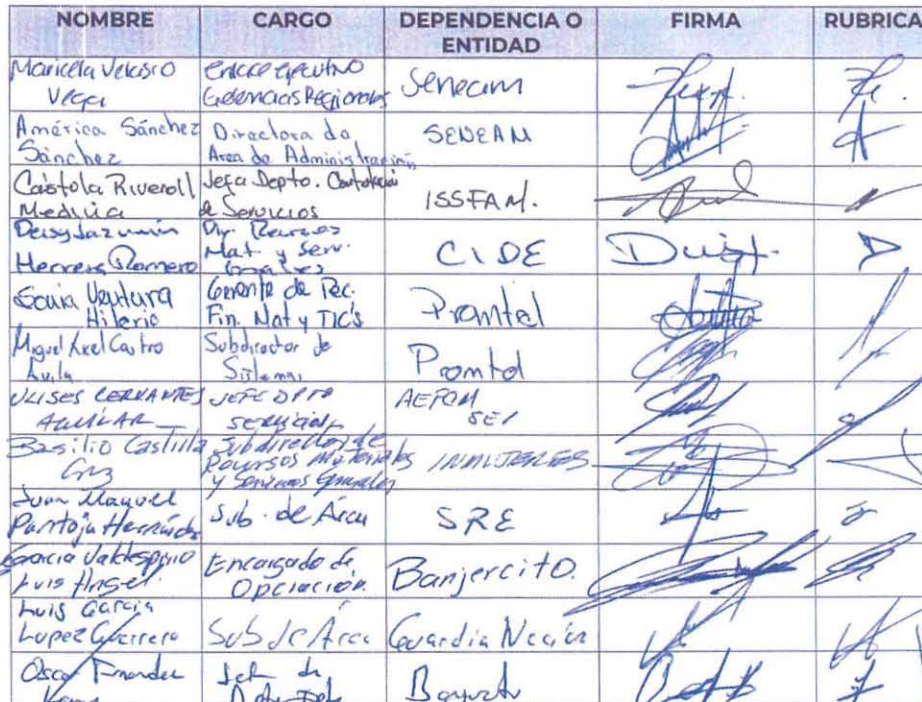 NOMBRE CARGO DEPENDENCIA O ENTIDAD FIRMA RUBRICA
Maricela Velasco Vega
Enlace Ejecutivo Gerencias Regionales
Seneam
América Sánchez Sánchez
Directora de Area de Administración
SENEAM
Castola Riveroll Medina
Jefa Depto. Contratación de Servicios
ISSFAM.
Deisy Jazmin Herrera Romero
Dir. Recursos Mat. y Serv. Grales
CIDE
Sonia Ventura Hilario
Gerente de Rec. Fin. Mat y TIC's
Promtel
Miguel Axel Castro Avila
Subdirector de Sistemas
Promtel
ULISES CERVANTES AGUILAR
JEFE DPTO SERVICIOS
AEFCM
Basilio Castilla Cruz
Subdirector de Recursos Materiales y Servicios Generales
INMUJERES
Juan Manuel Pantoja Hernández
Sub. de Área
SRE
Garcia Valdespino Luis Angel
Encargado de Operación.
Banjercito.
Luis Garcia Lopez Guerrero
Sub de Area
Guardia Nacion
Oscar Fernandez
Jefe de